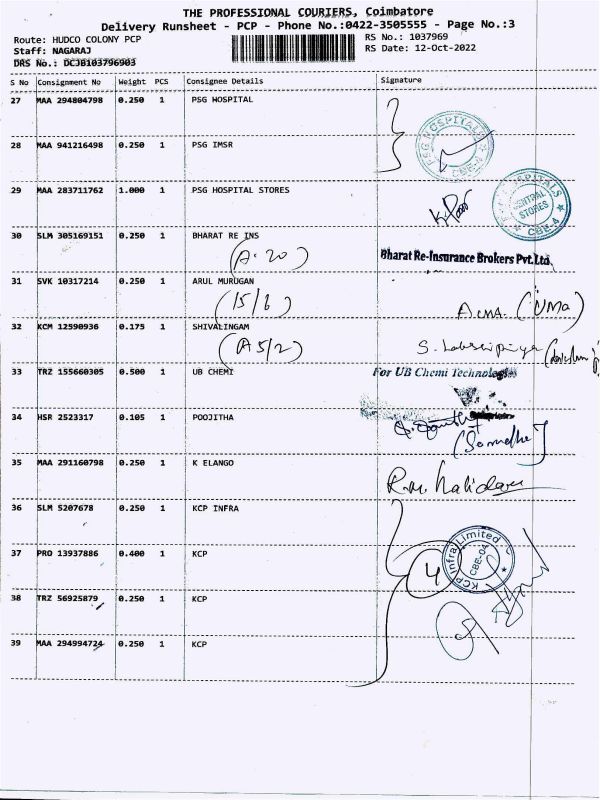 THE PROFESSIONAL COURIERS, Coimbatore
Delivery Runsheet - PCP - Phone No.:0422-3505555 - Page No.:3
Route: HUDCO COLONY PCP
RS No.: 1037969
Staff: NAGARAJ
RS Date: 12-Oct-2022
DRS No.: DCJB103796903
S No Consignment No Weight PCS Consignee Details Signature
27 MAA 294804798 0.250 1 PSG HOSPITAL
PSG HOSPITALS
CBE-4
28 MAA 941216498 0.250 1 PSG IMSR
29 MAA 283711762 1.000 1 PSG HOSPITAL STORES
HOSPITALS
CENTRAL STORES
CBE-4
30 SLM 305169151 0.250 1 BHARAT RE INS
(A-20)
Bharat Re-Insurance Brokers Pvt.Ltd
31 SVK 10317214 0.250 1 ARUL MURUGAN
(15/6)
(Uma)
32 KCM 12590936 0.175 1 SHIVALINGAM
(A5/2)
33 TRZ 155660305 0.500 1 UB CHEMI
For UB Chemi Technologies
34 HSR 2523317 0.105 1 POOJITHA
35 MAA 291160798 0.250 1 K ELANGO
36 SLM 5207678 0.250 1 KCP INFRA
KCP Infra Limited
CBE-04
37 PRO 13937886 0.400 1 KCP
4
38 TRZ 56925879 0.250 1 KCP
39 MAA 294994724 0.250 1 KCP